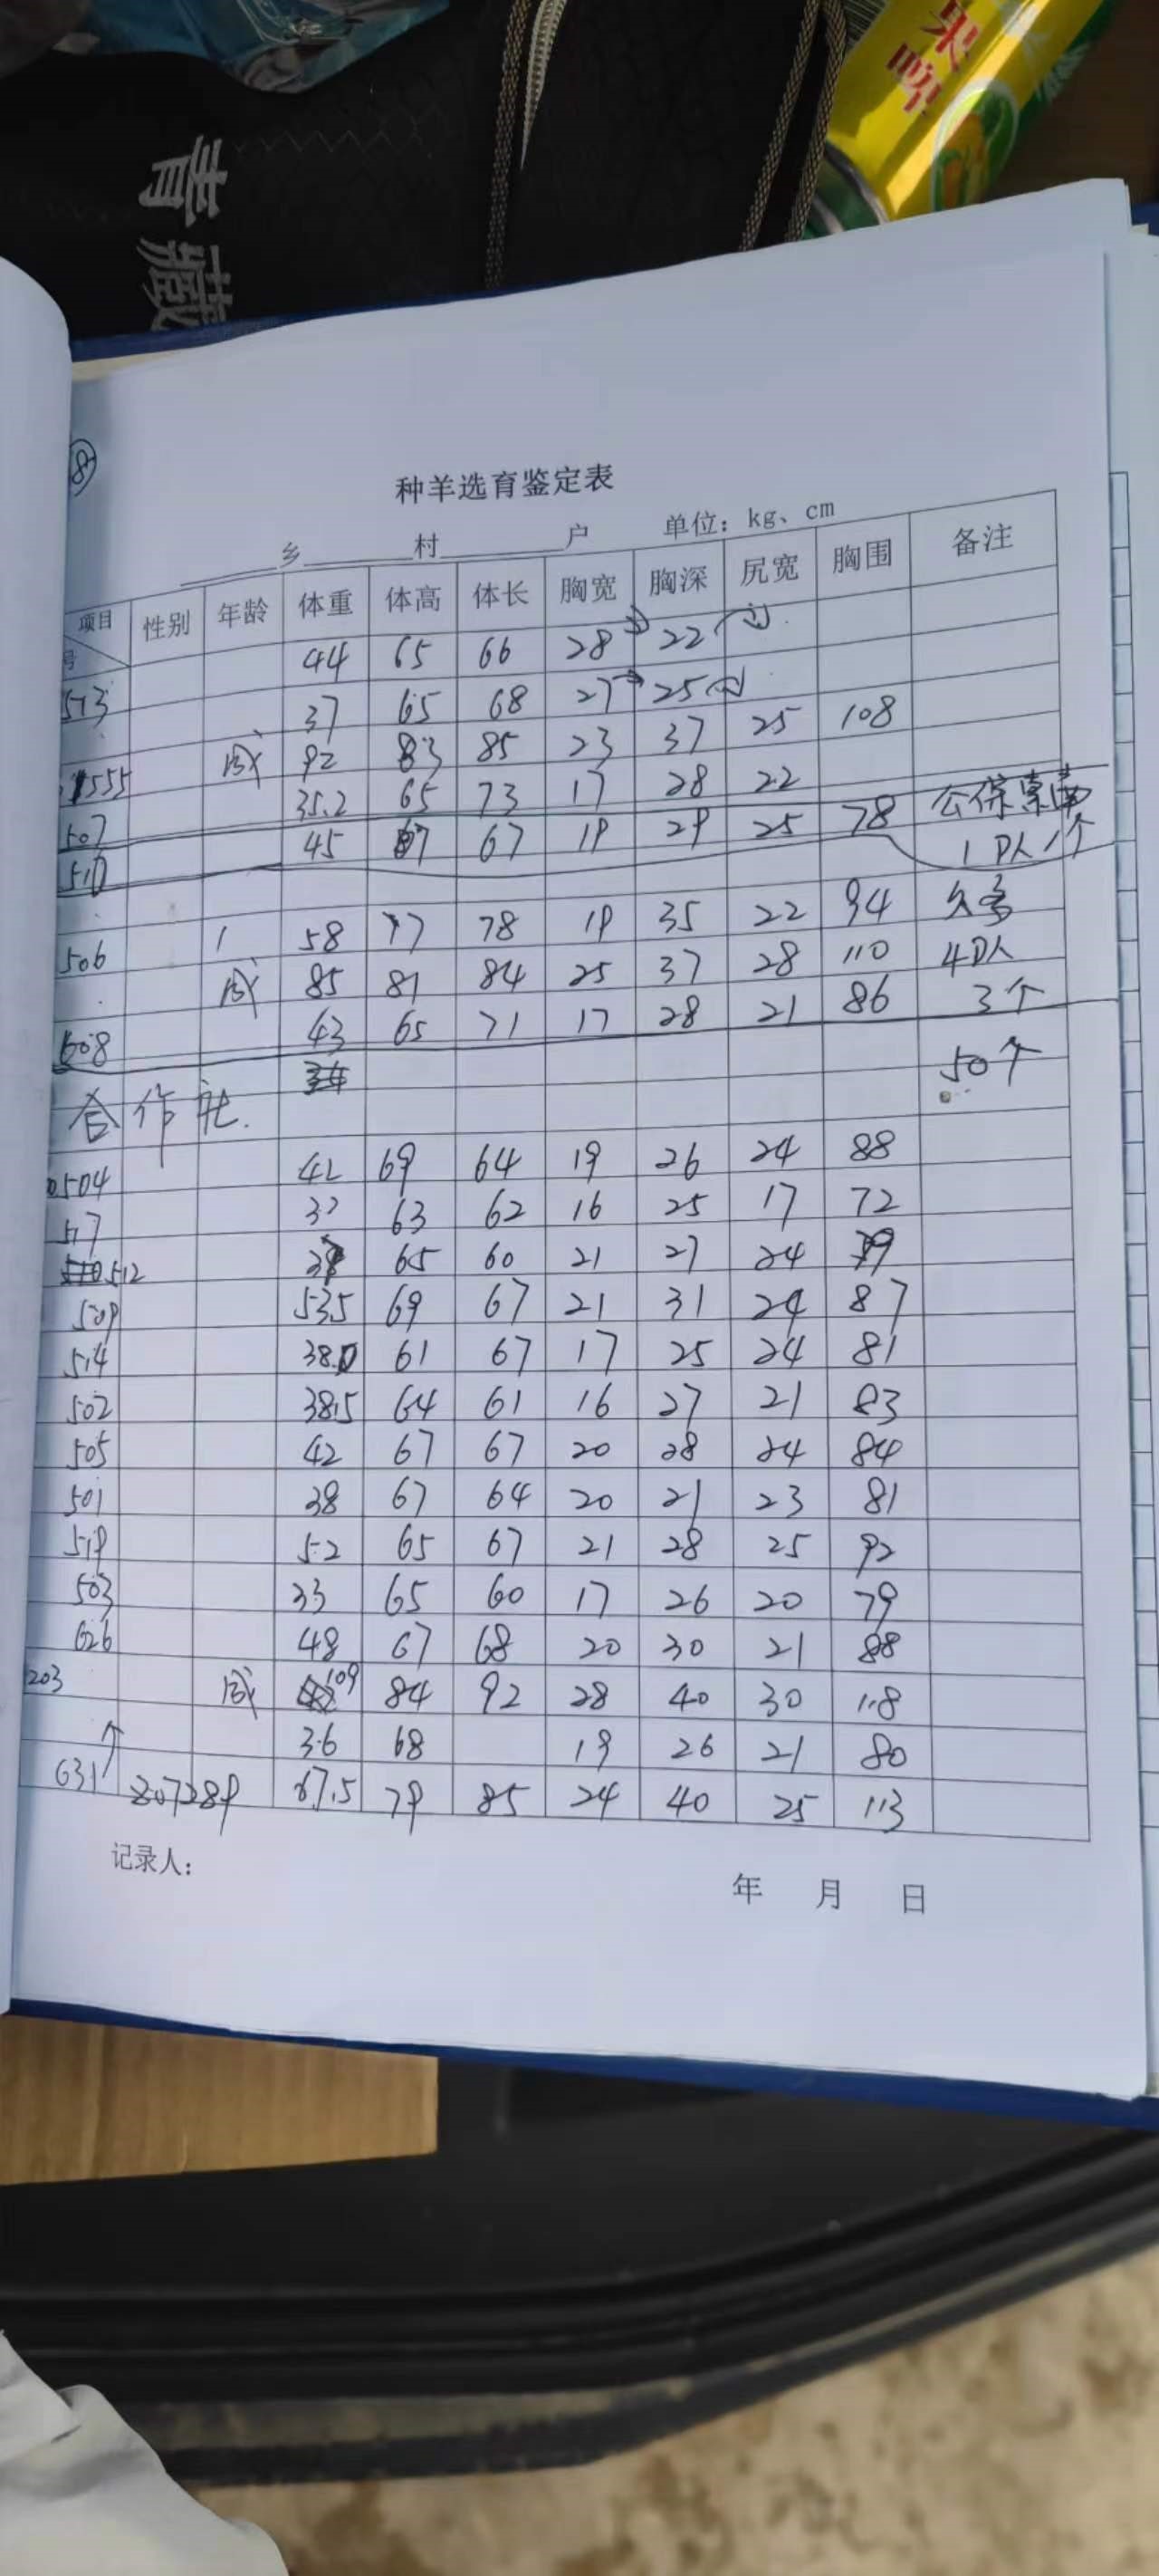 果啤
青藏
8
种羊选育鉴定表
乡 村 户 单位：kg、cm
项目 号 性别 年龄 体重 体高 体长 胸宽 胸深 尻宽 胸围 备注
513 44 65 66 28 22
37 65 68 27 25
555 成 92 83 85 23 37 25 108
507 35.2 65 73 17 28 22
510 45 67 67 19 29 25 78 公保
1队1个
506 1 58 77 78 19 35 22 94
成 85 81 84 25 37 28 110 4队
608 43 65 71 17 28 21 86 3个
合作社. 50个
0504 42 69 64 19 26 24 88
517 32 63 62 16 25 17 72
512 38 65 60 21 27 24 79
509 53.5 69 67 21 31 24 87
514 38.0 61 67 17 25 24 81
502 38.5 64 61 16 27 21 83
505 42 67 67 20 28 24 84
501 38 67 64 20 21 23 81
519 52 65 67 21 28 25 92
503 33 65 60 17 26 20 79
626 48 67 68 20 30 21 88
203 成 109 84 92 28 40 30 118
36 68 19 26 21 80
631 807289 67.5 79 85 24 40 25 113
记录人：
年 月 日